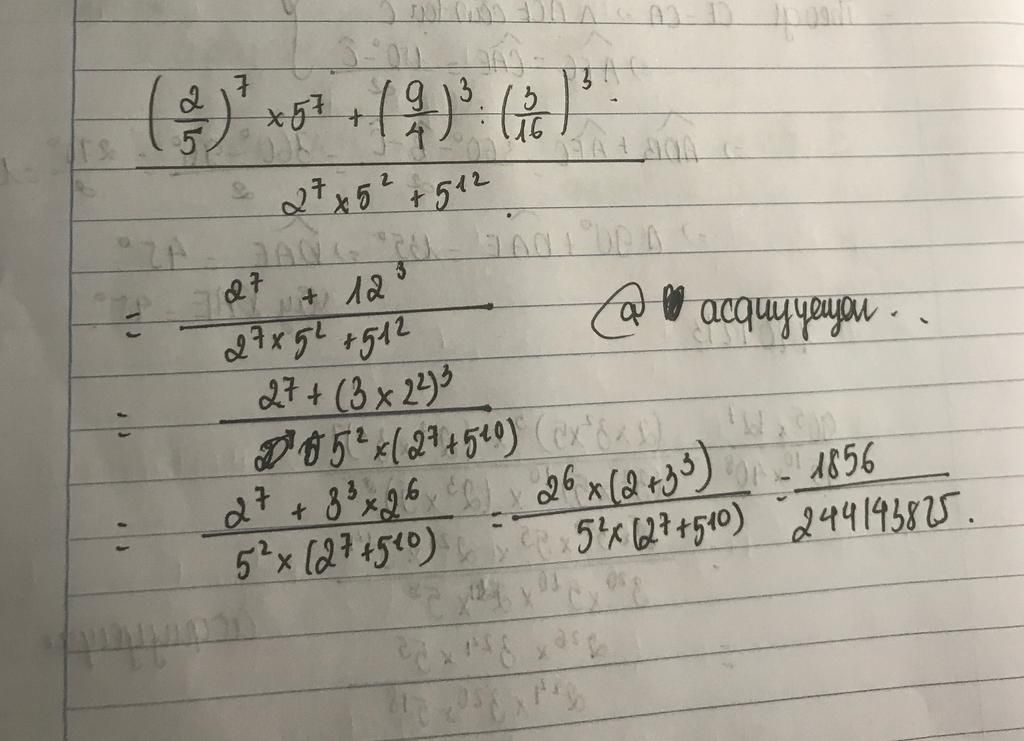 (2/5)^7 × 5^7 + (9/4)^3 : (3/16)^3
2^7 × 5^2 + 5^12
= (2^7 + 12^3) / (2^7 × 5^2 + 512)
= (2^7 + (3 × 2^2)^3) / (5^2 × (2^7 + 5^10))
= (2^7 + 3^3 × 2^6) / (5^2 × (2^7 + 5^10)) = (2^6 × (2 + 3^3)) / (5^2 × (2^7 + 5^10)) = 1856 / 244143825.